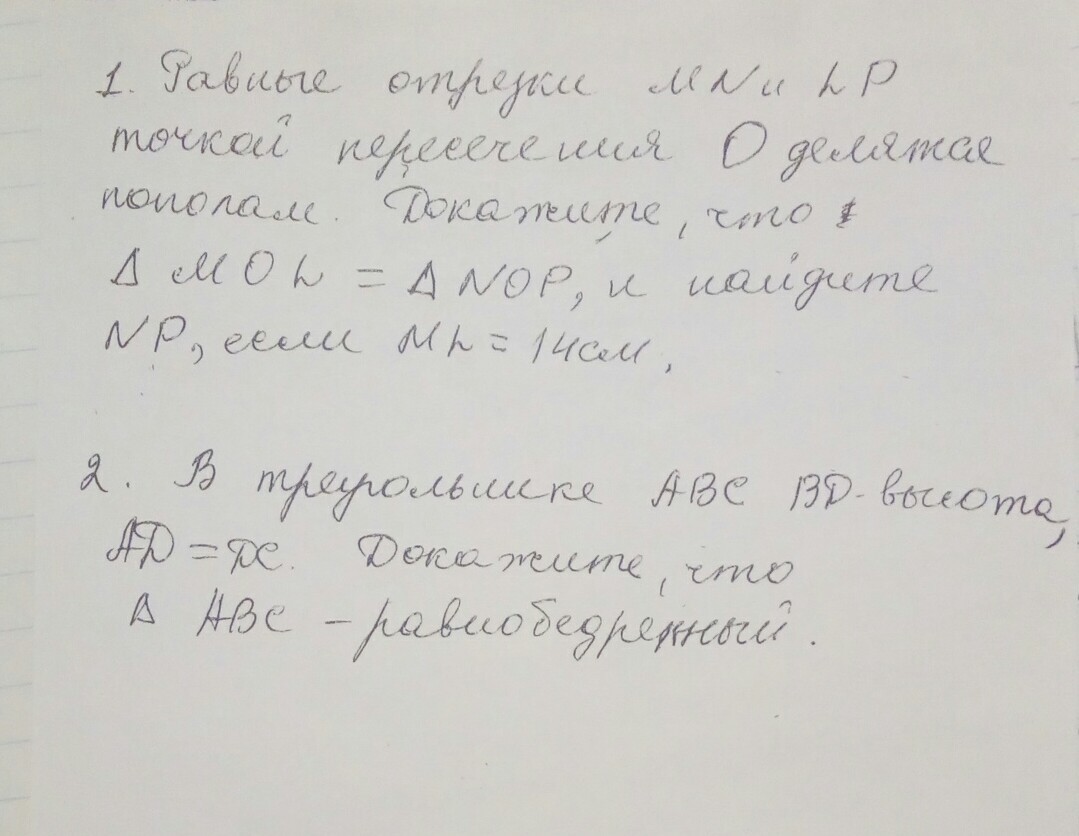 1. Равные отрезки MN и LP
точкой пересечения O делятся
пополам. Докажите, что
Δ MOL = Δ NOP, и найдите
NP, если ML = 14см,
2. В треугольнике ABC BD-высота,
AD = DC. Докажите, что
Δ ABC – равнобедренный.